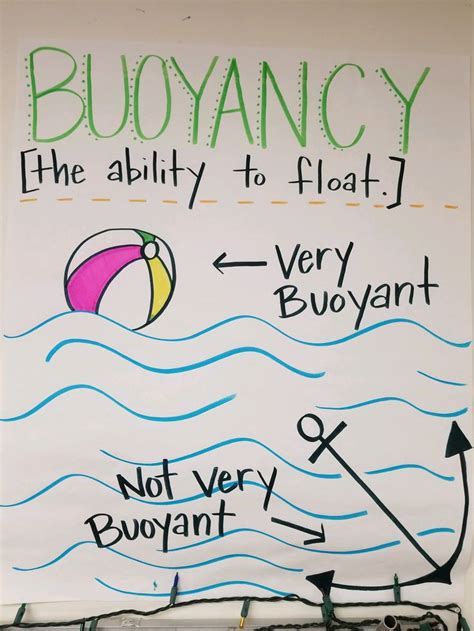 BUOYANCY
[the ability to float.]
← Very
Buoyant
Not Very
Buoyant →